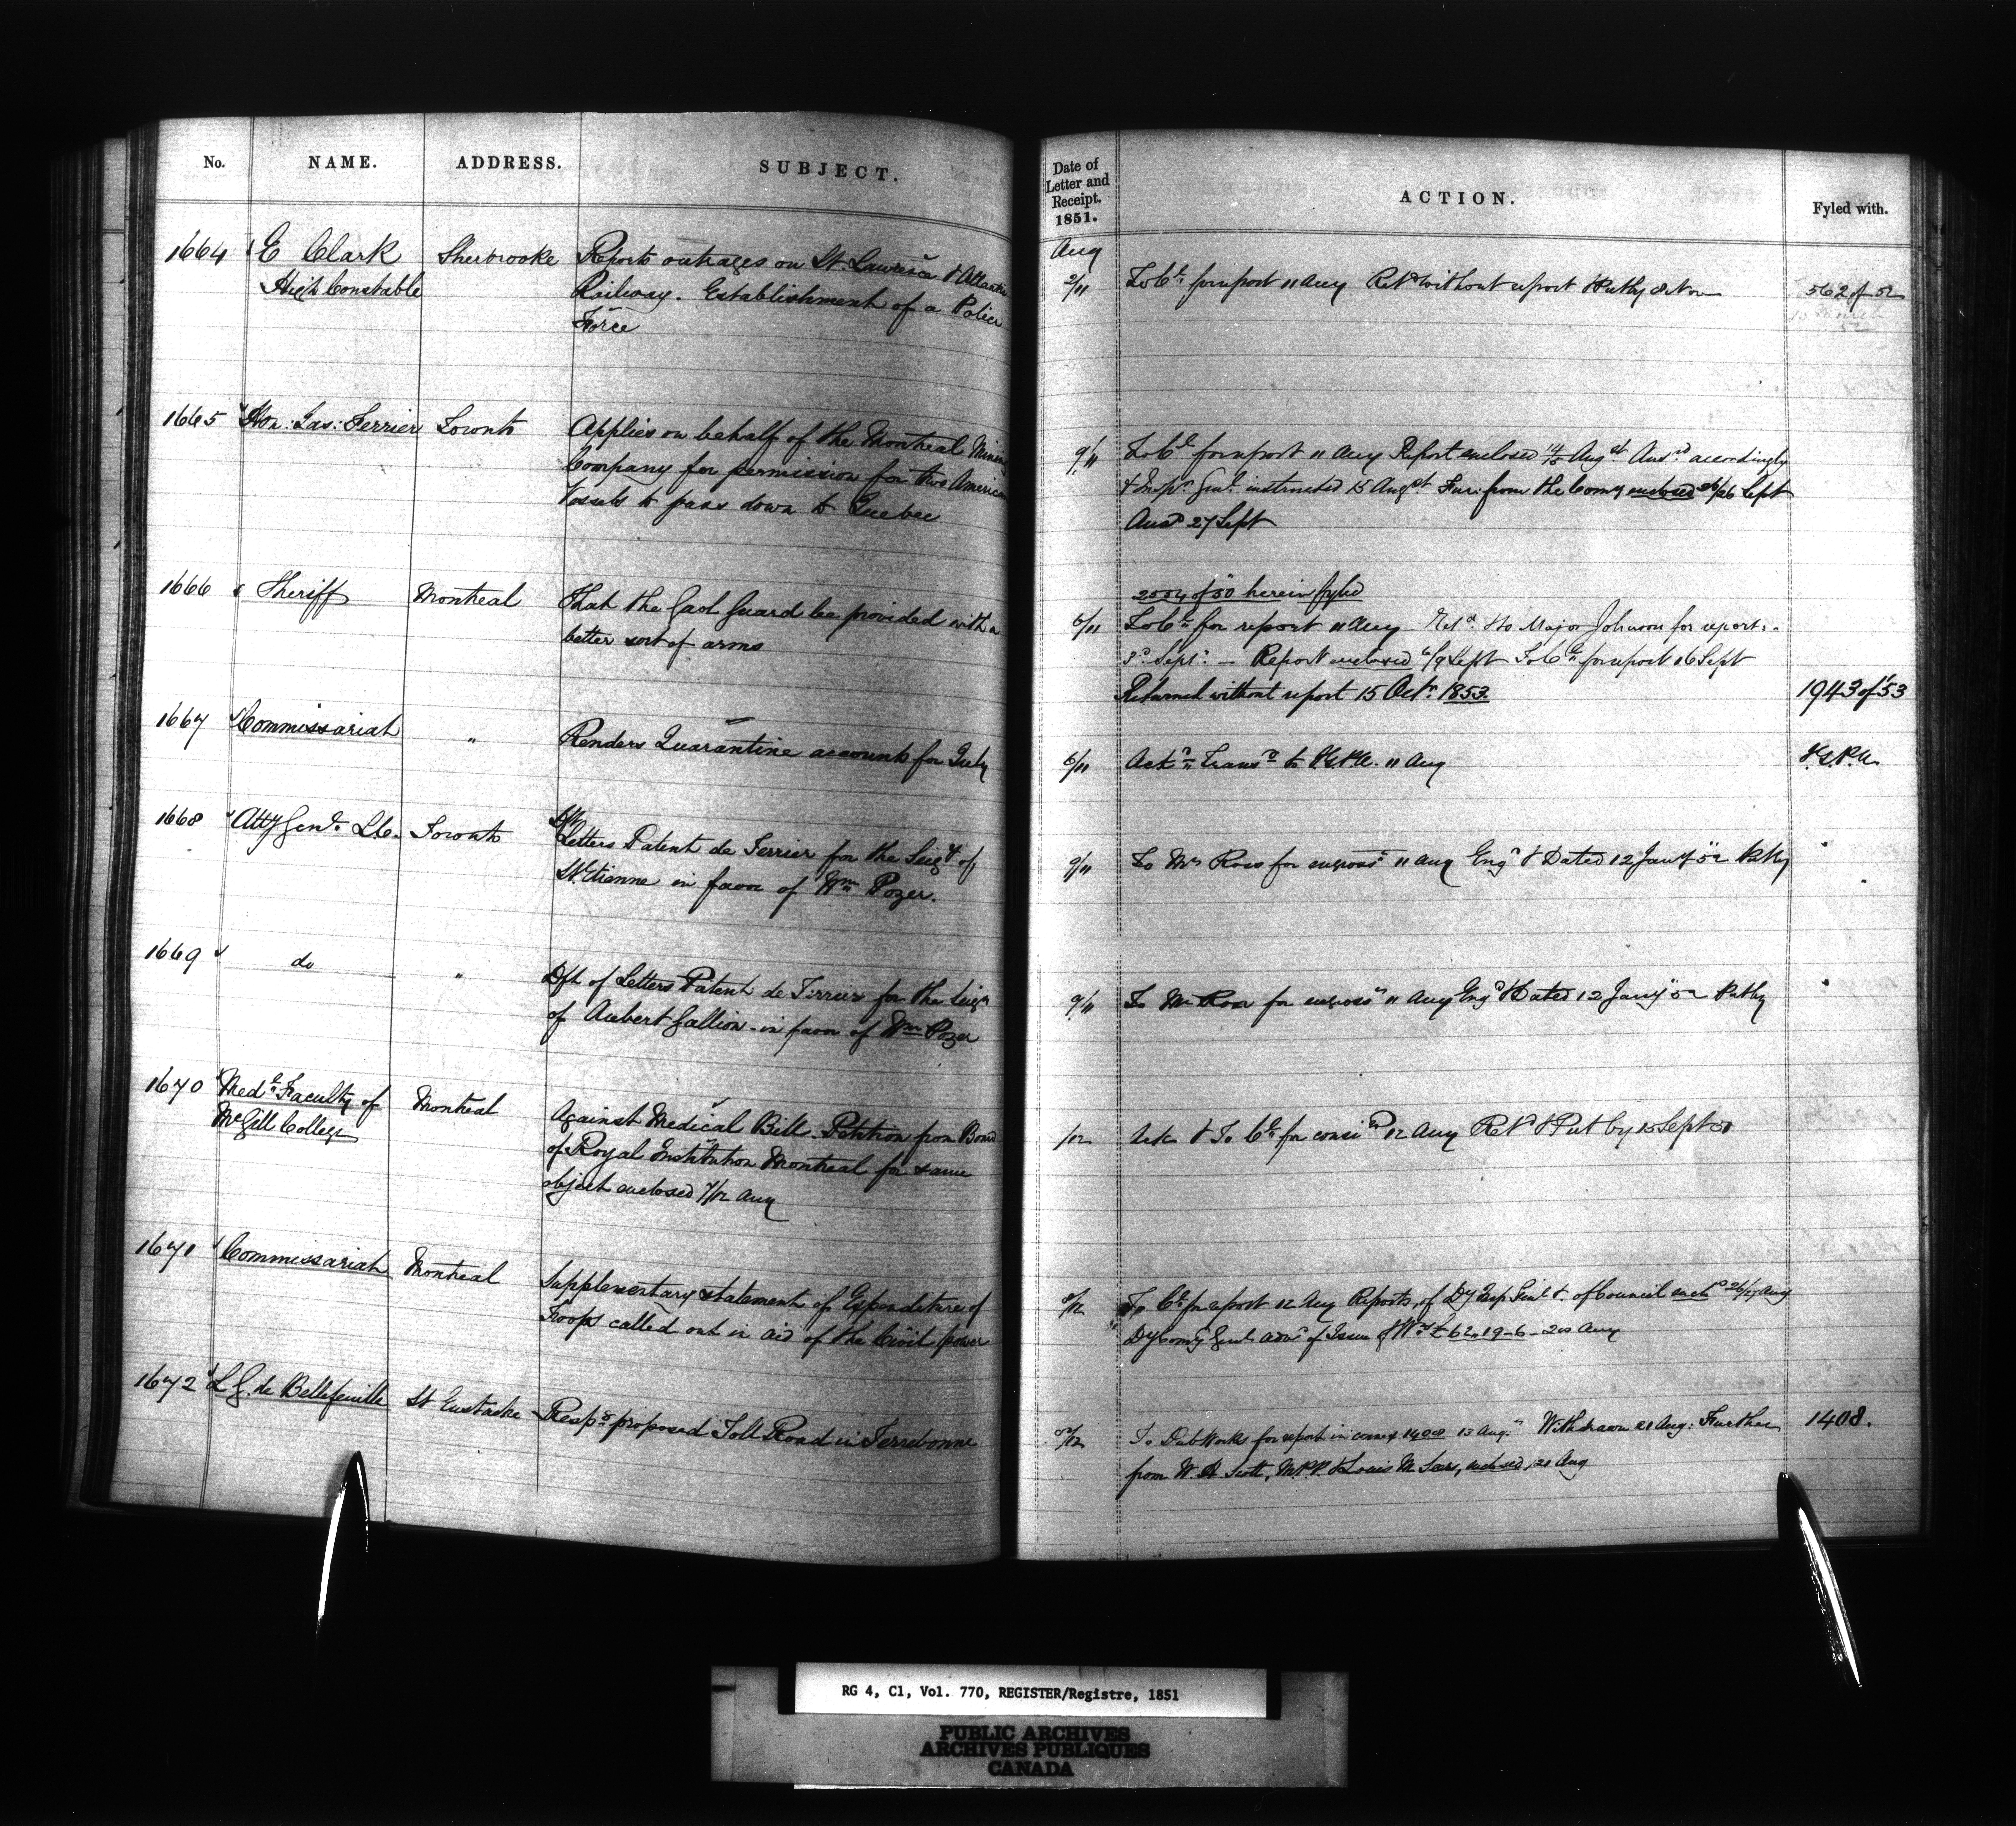 No. NAME. ADDRESS. SUBJECT.
Date of Letter and Receipt. 1851. ACTION. Fyled with.
Aug
1664 E Clark Sherbrooke Reports outrages on St. Lawrence & Atlantic
High Constable Railway. Establishment of a Police
Force
2/11 To Cl for report 11 Aug Retd without report & Put by 8 Nov 562 of 52
10 March
1665 Hon: Jas: Ferrier Toronto Applies on behalf of the Montreal Mining
Company for permission for two American
Vessels to pass down to Quebec
9/11 To Cl for report 11 Aug Report enclosed 14/15 Augst Ansd accordingly
& Inspr Genl instructed 15 Augst Fur. from the Comy enclosed 26/26 Sept
Ansd 27 Sept
1666 Sheriff Montreal That the Gaol Guard be provided with a
better sort of arms
2054 of 50 herein fyled
6/11 To Cl for report 11 Aug Retd & to Major Johnson for report:-
3d Sept: — Report enclosed 6/9 Sept To Cl for report 16 Sept
Returned without report 15 Octr 1853. 1943 of '53
1667 Commissariat " Renders Quarantine accounts for July
6/11 Ackd Transd to 11 Aug
1668 Atty Genl. L.C. Toronto Dft
Letters Patent de Terrier for the Seigy of
St. Etienne in favor of Wm Pozer.
9/11 To Mr Ross for engrosst 11 Aug Engd & Dated 12 Jany 52 Put by "
1669 do " Dft of Letters Patent de Terrier for the Seigy
of Aubert Gallion in favor of Wm Pozer
9/11 To Mr Ross for engrosst 11 Aug Engd & Dated 12 Jany 52 Put by "
1670 Medl Faculty of Montreal Against Medical Bill. Petition from Board
McGill College of Royal Institution Montreal for same
object enclosed 7/12 Aug
/12 Ack & To Cl for consn 12 Aug Retd & Put by 15 Sept 51
1671 Commissariat Montreal Supplementary statement of Expenditure of
Troops called out in aid of the Civil power
8/12 To Cl for report 12 Aug Reports, of Dy Insp Genl & of Council encd 26/27 Aug
Dy Comy Genl advd of Issue of Wt £62,,19-6-20 Aug
1672 L G. de Bellefeuille St Eustache Respg proposed Toll Road in Terrebonne
8/12 To Pub Works for report in connex 1408 13 Aug: Withdrawn 21 Aug: Further 1408.
from W. H. Scott, M.P.P. & Louis M enclosed, 21 Aug
RG 4, C1, Vol. 770, REGISTER/Registre, 1851
PUBLIC ARCHIVES
ARCHIVES PUBLIQUES
CANADA